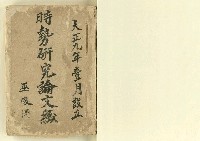 大正九年壹月設立
時勢研究論文綴
巫俊